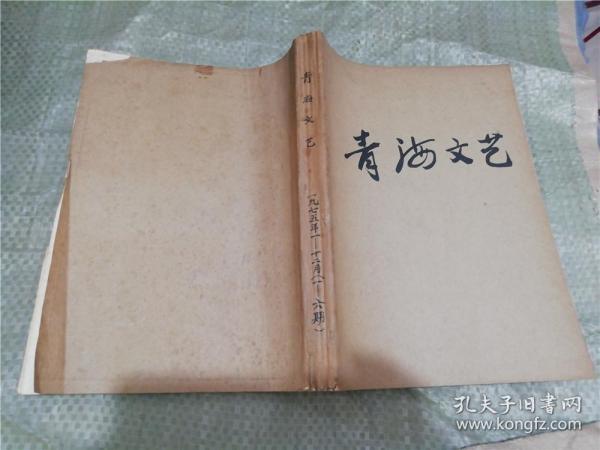 青海文艺
青海文艺
一九七五年一——十二月（一——六期）
孔夫子旧书网
www.kongfz.com